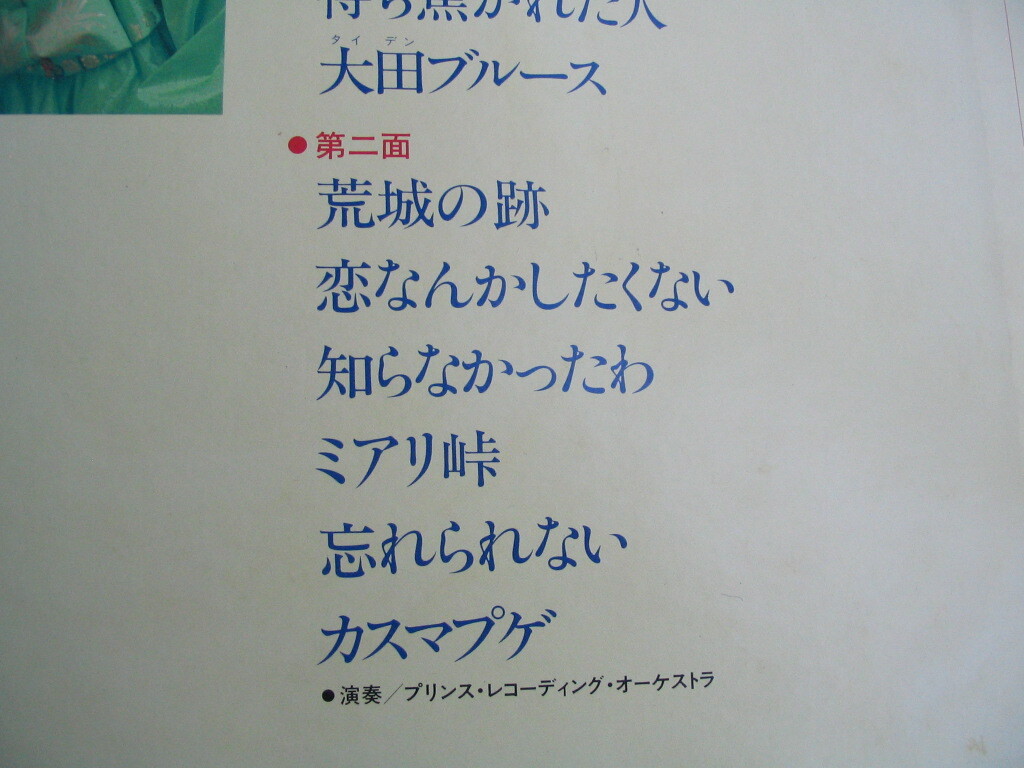 待ち焦がれた人
タイデン
大田ブルース
●第二面
荒城の跡
恋なんかしたくない
知らなかったわ
ミアリ峠
忘れられない
カスマプゲ
●演奏/プリンス・レコーディング・オーケストラ